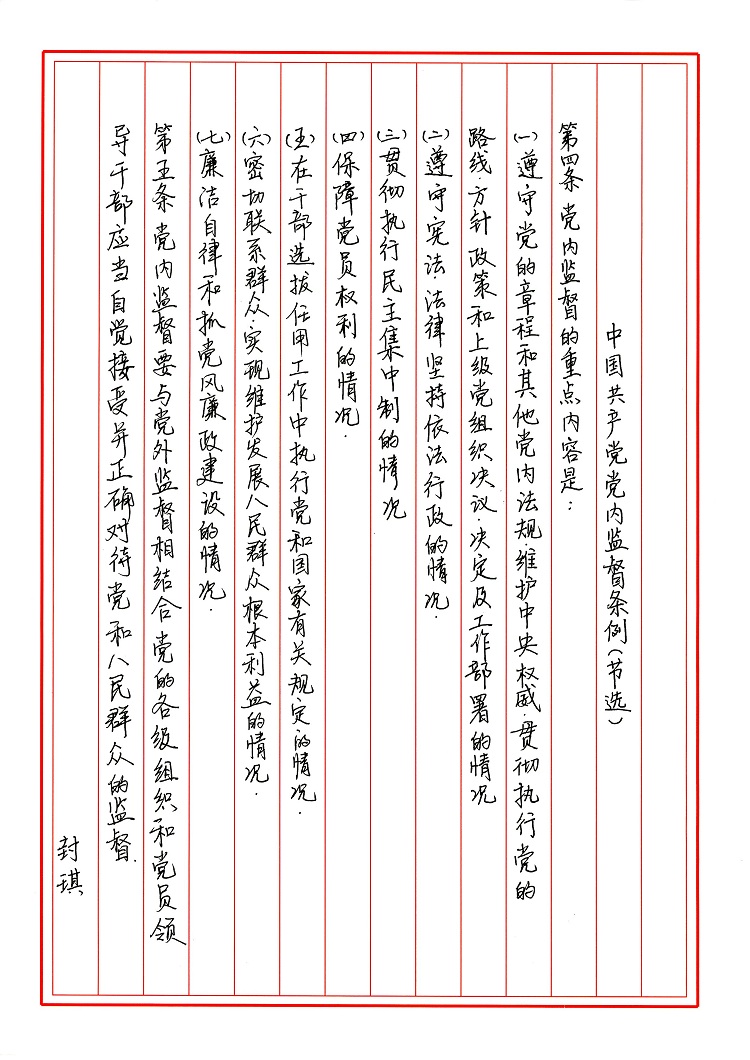 中国共产党党内监督条例(节选)
第四条党内监督的重点内容是:
(一)遵守党的章程和其他党内法规.维护中央权威.贯彻执行党的
路线.方针政策和上级党组织决议.决定及工作部署的情况
(二)遵守宪法.法律坚持依法行政的情况.
(三)贯彻执行民主集中制的情况
(四)保障党员权利的情况.
(五)在干部选拔任用工作中执行党和国家有关规定的情况.
(六)密切联系群众实现维护发展人民群众根本利益的情况.
(七)廉洁自律和抓党风廉政建设的情况.
第五条党内监督要与党外监督相结合党的各级组织和党员领
导干部应当自觉接受并正确对待党和人民群众的监督.
封琪